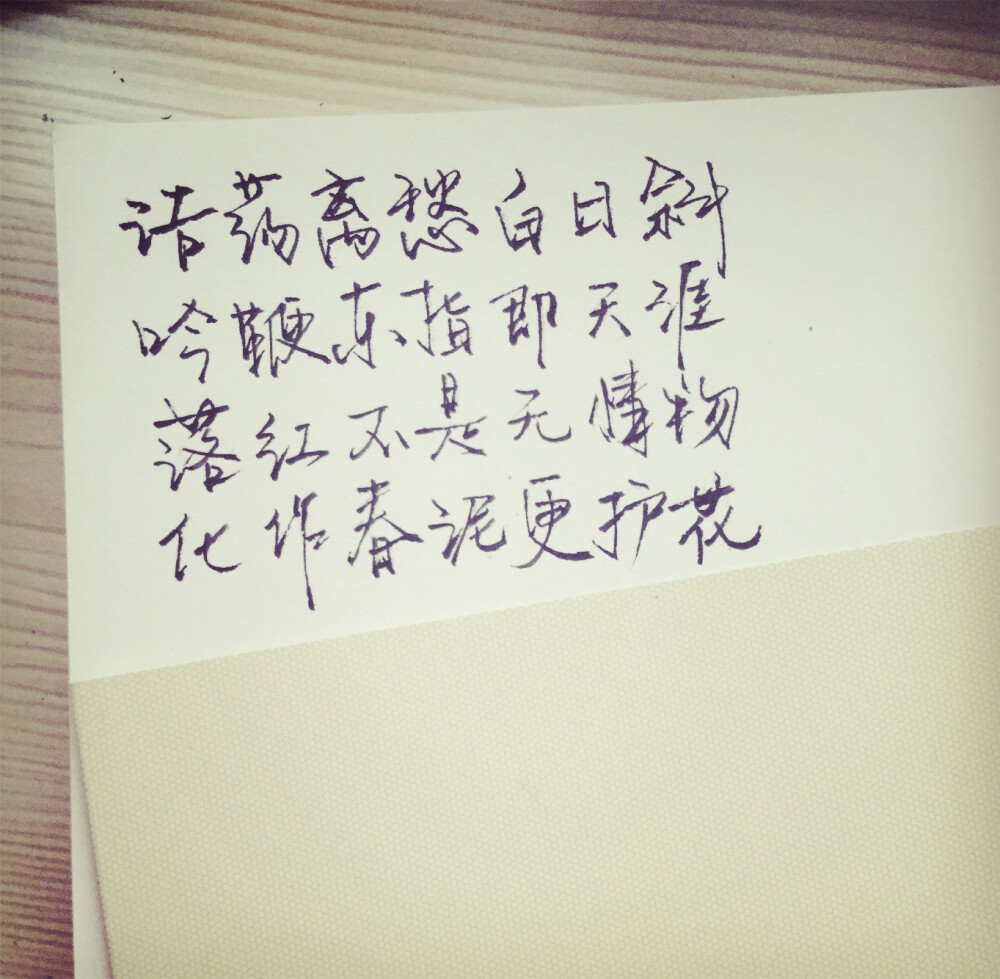 浩荡离愁白日斜
吟鞭东指即天涯
落红不是无情物
化作春泥更护花